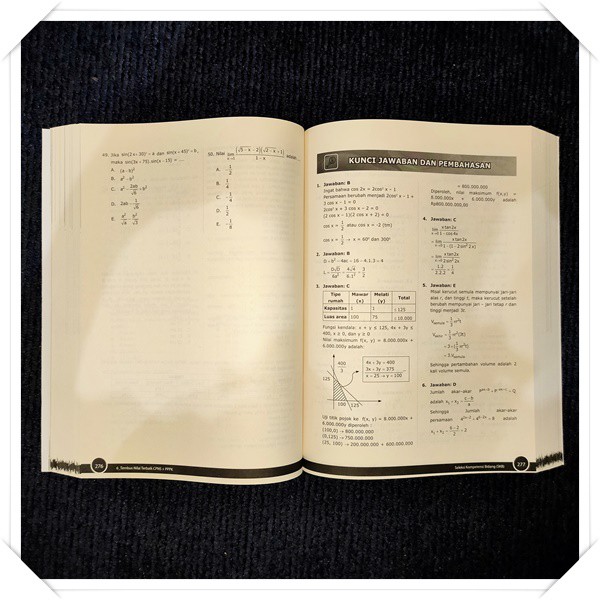 49. Jika sin(2x + 30)° = a dan sin(x + 45)° = b,
maka sin(3x + 75) sin(x - 15) = ....
A. (a - b)²
B. a² - b²
E.
50. Nilai lim
x→1
1 - x
adalah ....
A. -1/2
B. 1/4
C. -1/4
D. 1/2
E. -1/8
276
KUNCI JAWABAN DAN PEMBAHASAN
1. Jawaban: B
Ingat bahwa cos 2x = 2cos² x - 1
Persamaan berubah menjadi 2cos² x - 1 +
3 cos x - 1 = 0
2cos² x + 3 cos x - 2 = 0
(2 cos x - 1)(2 cos x + 2) = 0
cos x = 1/2 atau cos x = -2 (tm)
cos x = 1/2 → x = 60° dan 300°
2. Jawaban: B
D = b² - 4ac = 16 - 4.1.3 = 4
L = D√D/6a² = 4√4/6.1² = 3/2
3. Jawaban: C
Tipe rumah Mawar (x) Melati (y) Total
Kapasitas 1 1 ≤ 125
Luas area 100 75 ≤ 10.000
Fungsi kendala: x + y ≤ 125, 4x + 3y ≤
400, x ≥ 0, dan y ≥ 0
Nilai maksimum f(x, y) = 8.000.000x +
6.000.000y adalah:
400/3
125
100 125
4x + 3y = 400
3x + 3y = 375
x = 25 → y = 100
Uji titik pojok ke f(x, y) = 8.000.000x +
6.000.000y diperoleh :
(100,0) → 800.000.000
(0,125) → 750.000.000
(25, 100) → 200.000.000 + 600.000.000
= 800.000.000
Diperoleh, nilai maksimum f(x,y) =
8.000.000x + 6.000.000y adalah
Rp800.000.000,00
4. Jawaban: C
lim x→0 x tan2x/1 - cos4x
= lim x→0 x tan2x/1 - (1 - 2sin² 2x)
= lim x→0 x tan2x/2sin² 2x
= 1.2/2.2.2 = 1/4
5. Jawaban: E
Misal kerucut semula mempunyai jari-jari
alas r, dan tinggi t, maka kerucut setelah
berubah mempunyai jari - jari tetap r dan
tinggi menjadi 3t
Sehingga pertambahan volume adalah 2
kali volume semula.
6. Jawaban: D
Jumlah akar-akar
adalah x₁ + x₂ = c - b/a
Sehingga jumlah akar-akar
persamaan adalah
x₁ + x₂ = 8 - 2/3 = 2
Seleksi Kompetensi Bidang (SKB)
277